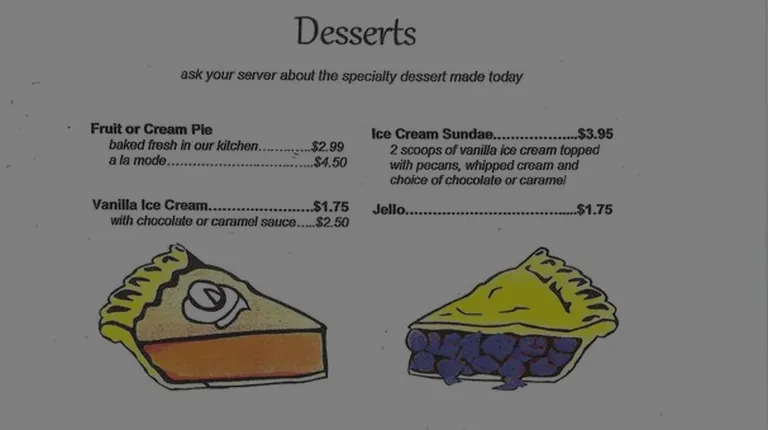 Desserts
ask your server about the specialty dessert made today
Fruit or Cream Pie
baked fresh in our kitchen............$2.99
a la mode.................................$4.50
Vanilla Ice Cream.....................$1.75
with chocolate or caramel sauce.....$2.50
Ice Cream Sundae.................$3.95
2 scoops of vanilla ice cream topped
with pecans, whipped cream and
choice of chocolate or caramel
Jello...................................$1.75